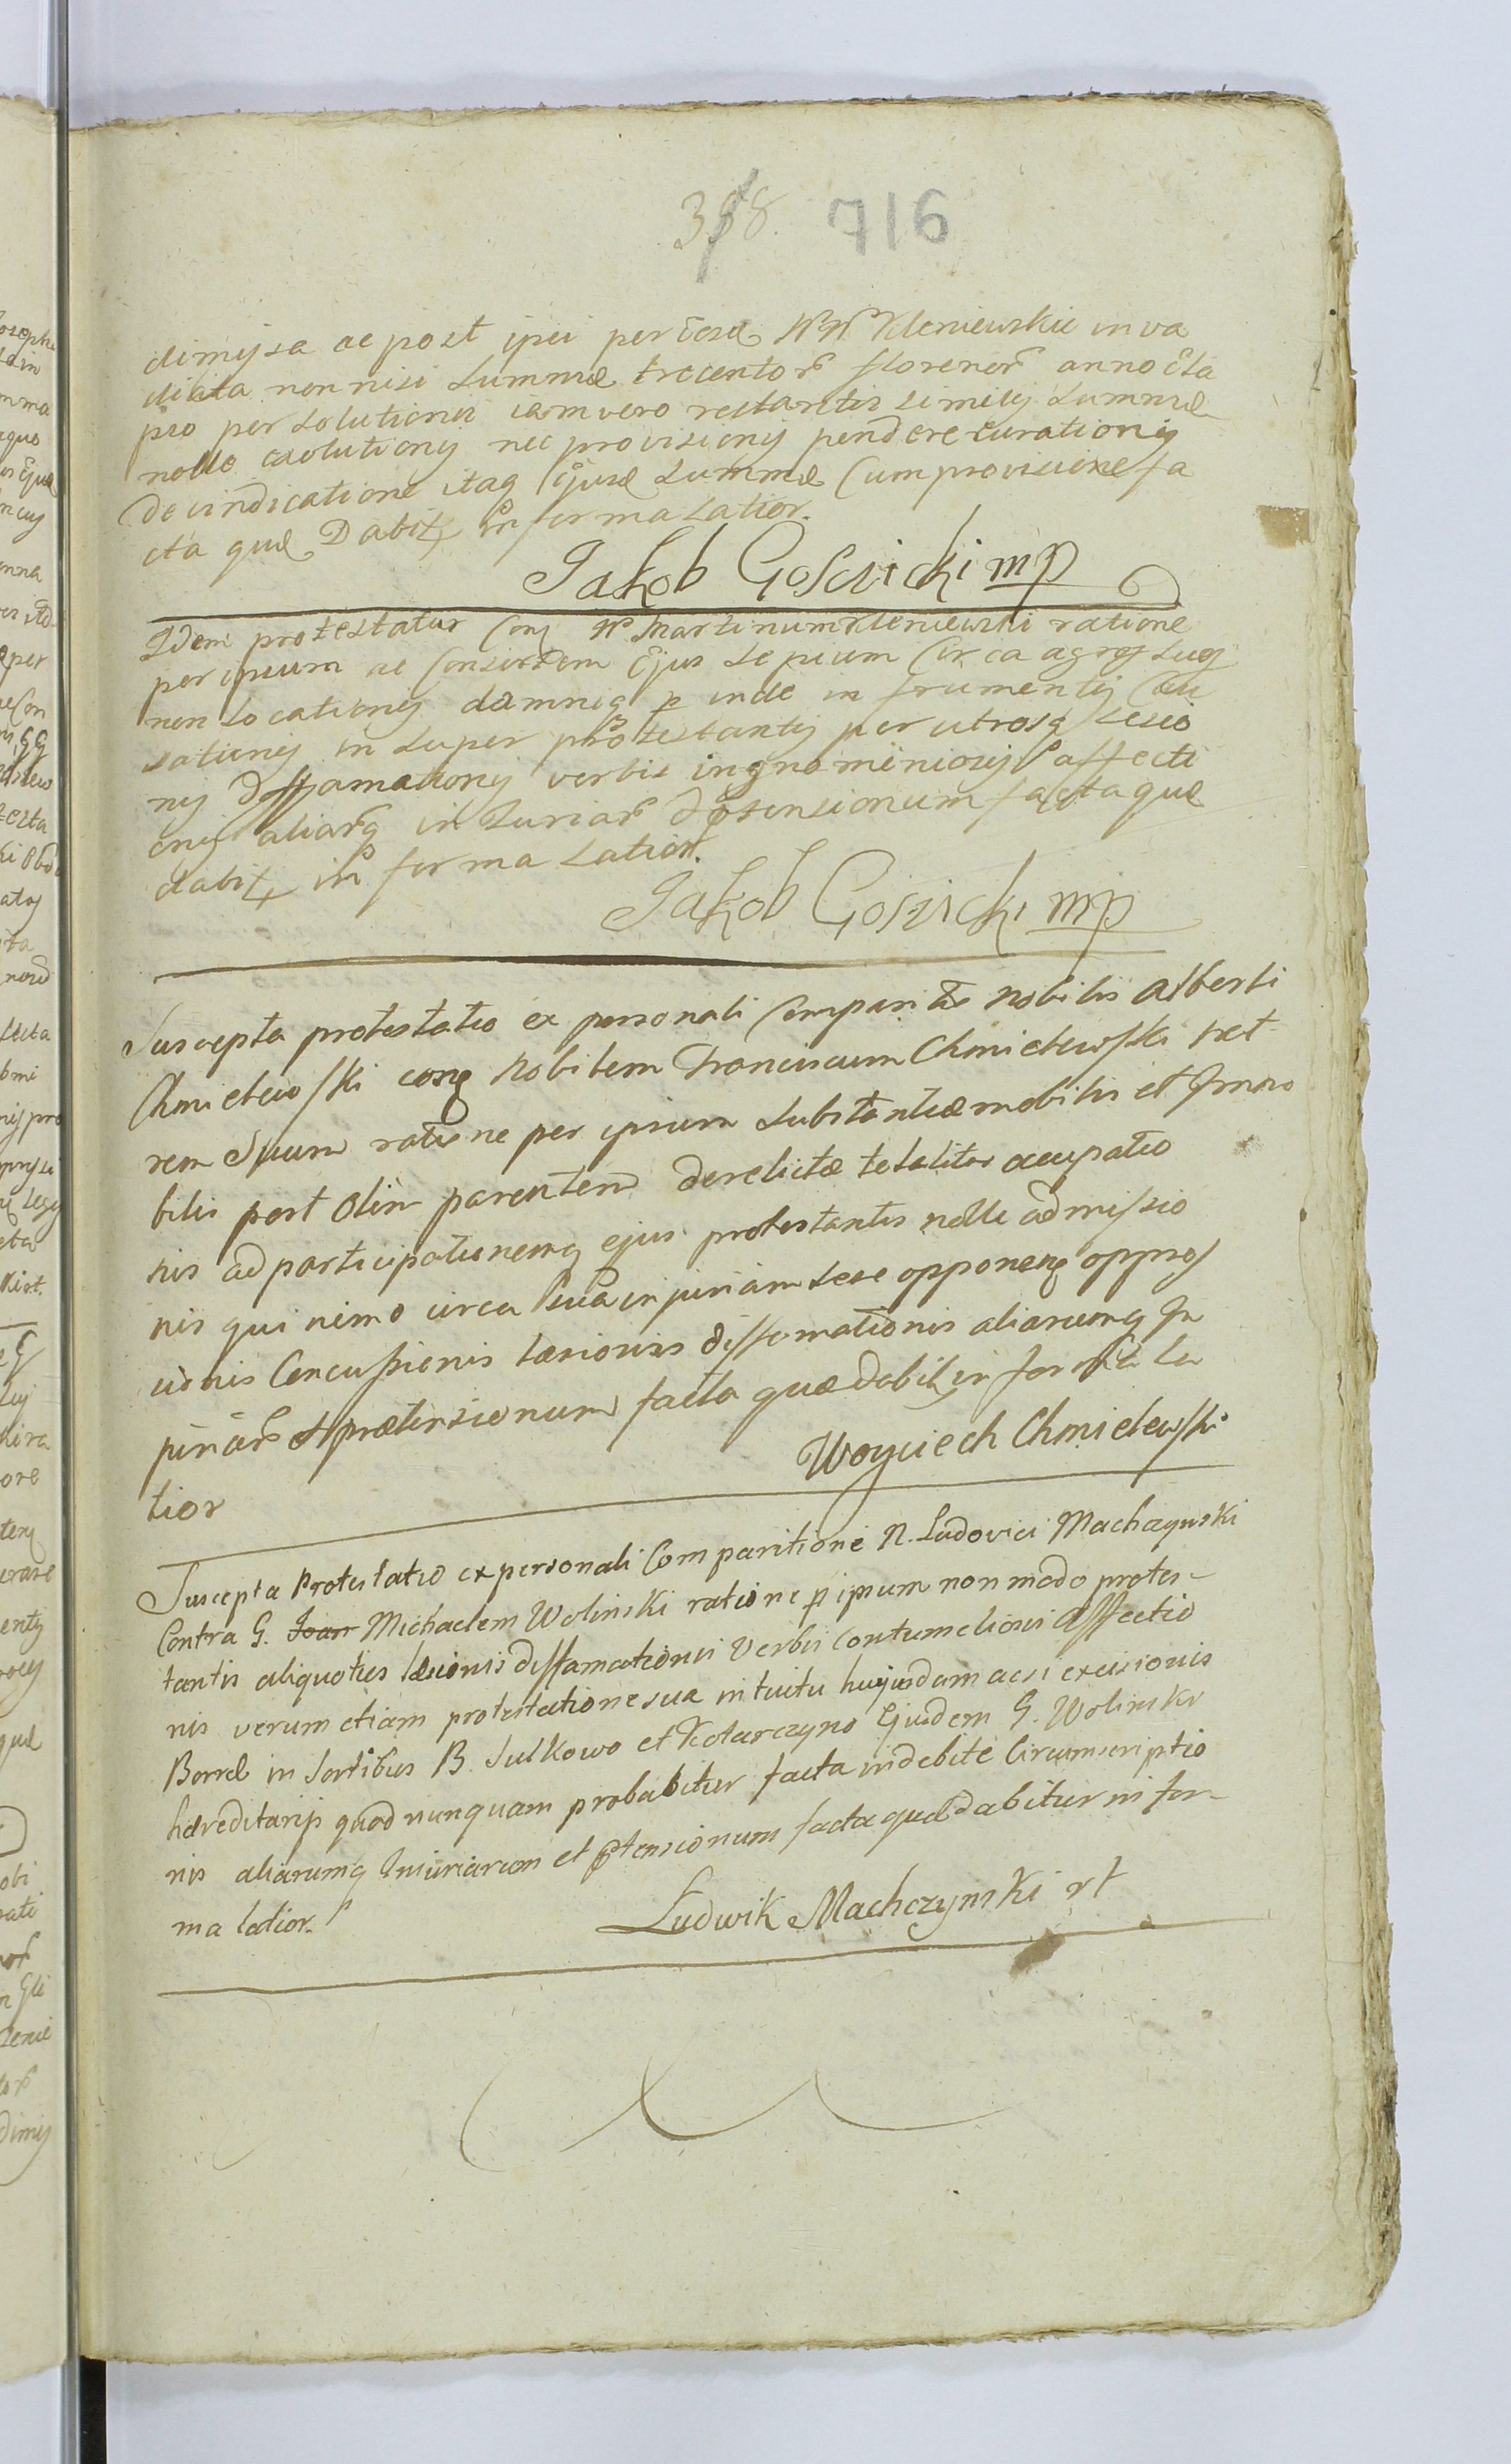 358. 716
dimissa ac post ipsi per eosd NN Kleniewskie inva
diata non nisi summæ trecentor florenor anno Eta
pro persolutionis iam vero restantis similis summæ
nolle exolutionis nec provisionis pendere curationis
De vindicatione itaq Ejusd summæ Cum provisione fa
cta quæ Dabitr in forma latior.
Jakob Goscicki mp
Idem protestatur Con N Martinum Kleniewski ratione
per ipsum ac Consortem Ejus sepium Circa agros suos
non locationis damniq p inde in frumentis Cau
sationis in super protestantis per utrosq lesio
nis Diffamationis verbis ingnominiosis affecti
onis aliarq iniuriar Ptensionum facta quæ
dabitr in forma latior.
Jakob Goscicki mp
Suscepta protestatio ex personali Comparitne Nobilis Alberti
Chmielewski cong Nobilem Franciscum Chmielewski frat
rem Suum ratione per ipsum substantiæ mobilis et Immo
bilis post olim parentem derelictæ totaliter occupatio
nis ad participationemq ejus protestantis nolle admissio
nis qui nimo circa sua injuriam sese opponenq oppres
sionis Concussionis læsionis diffamationis aliarumq In
juriar et prætensionum facta quæ dabitr in forma la
tior
Woyciech Chmielewski
Suscepta Protestatio ex personali Comparitione N. Ludovici Machczynski
Contra G. Joan Michaelem Wolinski ratione p ipsum non modo protes-
tantis aliquoties læsionis diffamationis Verbis contumeliosis Affectio
nis verum etiam protestatione sua intuitu hujusdam acsi excisionis
Borræ in Sortibus B. Sulkowo et Kotarczyno Ejusdem G. Wolinski
hæreditarijs quod nunquam probabitur facta indebite Circumscriptio
nis aliarumq Iniuriarum et Ptensionum facta quæ dabitur in for-
ma latior.
Ludwik Machczynski